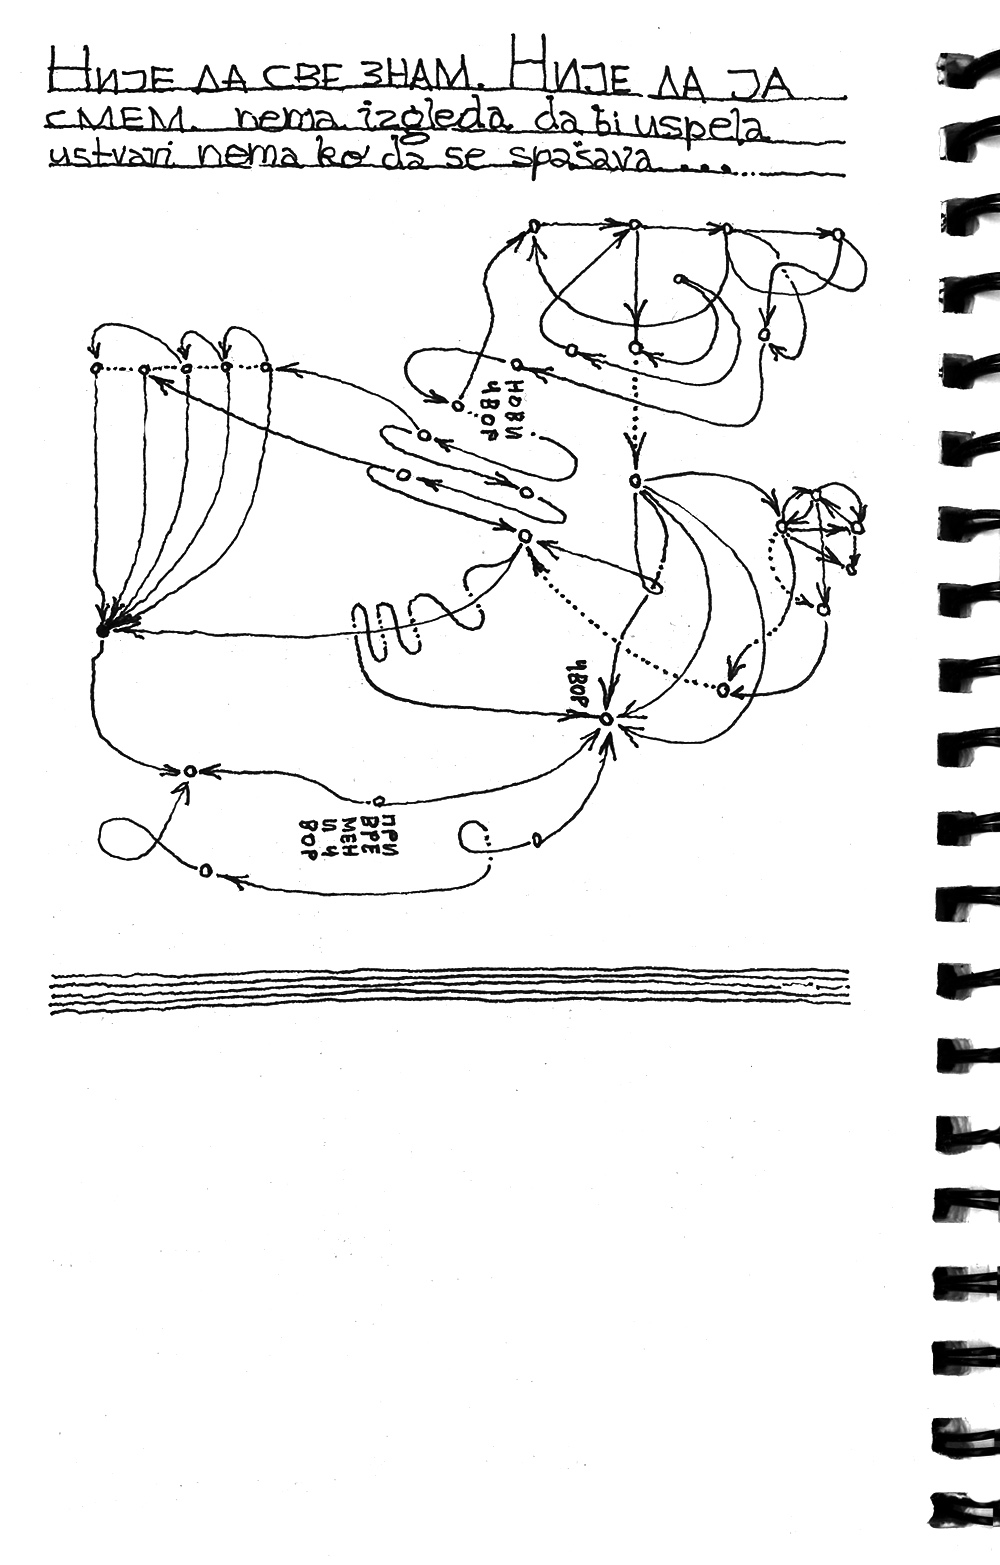 НИЈЕ ДА СВЕ ЗНАМ. НИЈЕ ДА ЈА
СМЕМ. nema izgleda da bi uspela
ustvari nema ko da se spašava ......
НОВИ
ЧВОР
ЧВОР
ПРИ
ВРЕ
МЕН
И Ч
ВОР